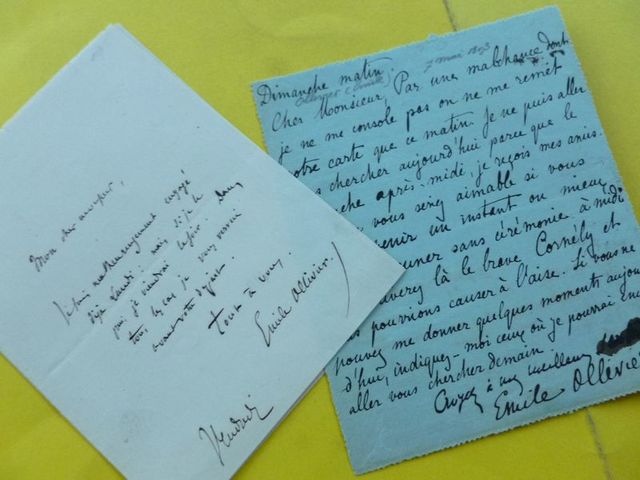 Mon cher
Je suis malheureusement engagé
déjà Lundi : mais si je le
puis je viendrai le soir. Dans
tous les cas je vous verrai
avant votre départ.
Tout à vous.
Emile Ollivier
Vendredi
Dimanche matin.
7 mai 1893
Ollivier (Emile)
Cher Monsieur, Par une malchance dont
je ne me console pas on ne me remet
votre carte que ce matin. Je ne puis aller
chercher aujourd'hui parce que le
après-midi, je reçois mes amis.
vous seriez aimable si vous
venir un instant ou mieux
sans cérémonie à midi
là le brave Cornély et
pourrions causer à l'aise. Si vous ne
pouvez me donner quelques moments aujour
d'hui, indiquez-moi ceux où je pourrai
aller vous chercher demain.
Croyez à mes meilleurs
Emile Ollivier